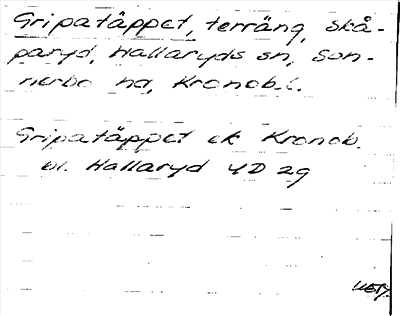 Gripatäppet, terräng, Skå-
paryd, Hallaryds sn, Sun-
nerbo hd, Kronob.l.
Gripatäppet ek Kronob.
bl. Hallaryd 4D 2g